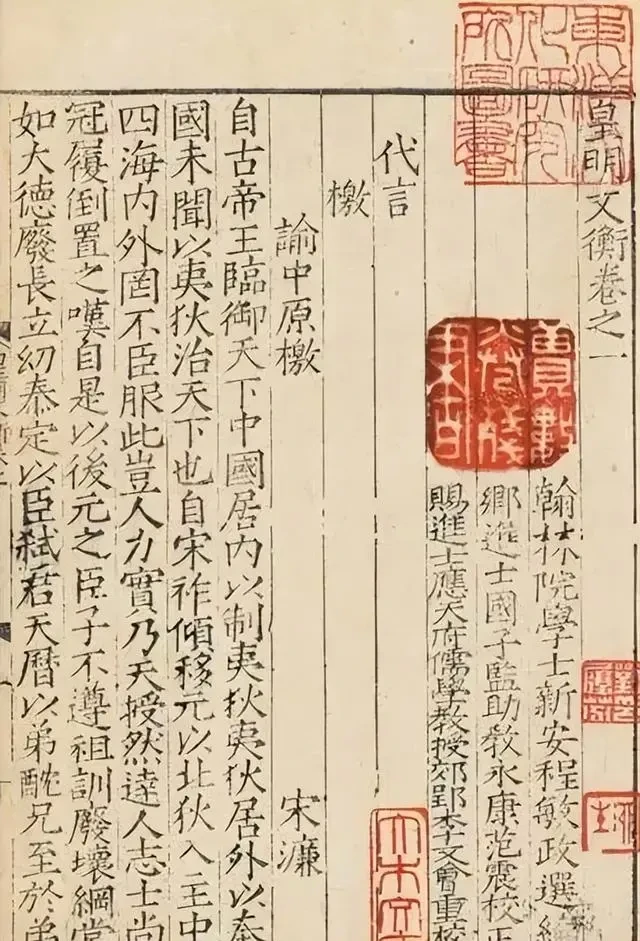 東洋文
化研究
所圖書
皇明文衡卷之一
翰林院學士新安程敏政選
鄉進士國子監助教永康范震校正
賜進士應天府儒學教授郢李文會重校
代言
檄
諭中原檄 宋濂
自古帝王臨御天下中國居內以制夷狄夷狄居外以奉
國未聞以夷狄治天下也自宋祚傾移元以北狄入主中
四海內外罔不臣服此豈人力實乃天授然達人志士尚
冠履倒置之嘆自是以後元之臣子不遵祖訓廢壞綱常
如大德廢長立幼泰定以臣弑君天曆以弟酖兄至於弟